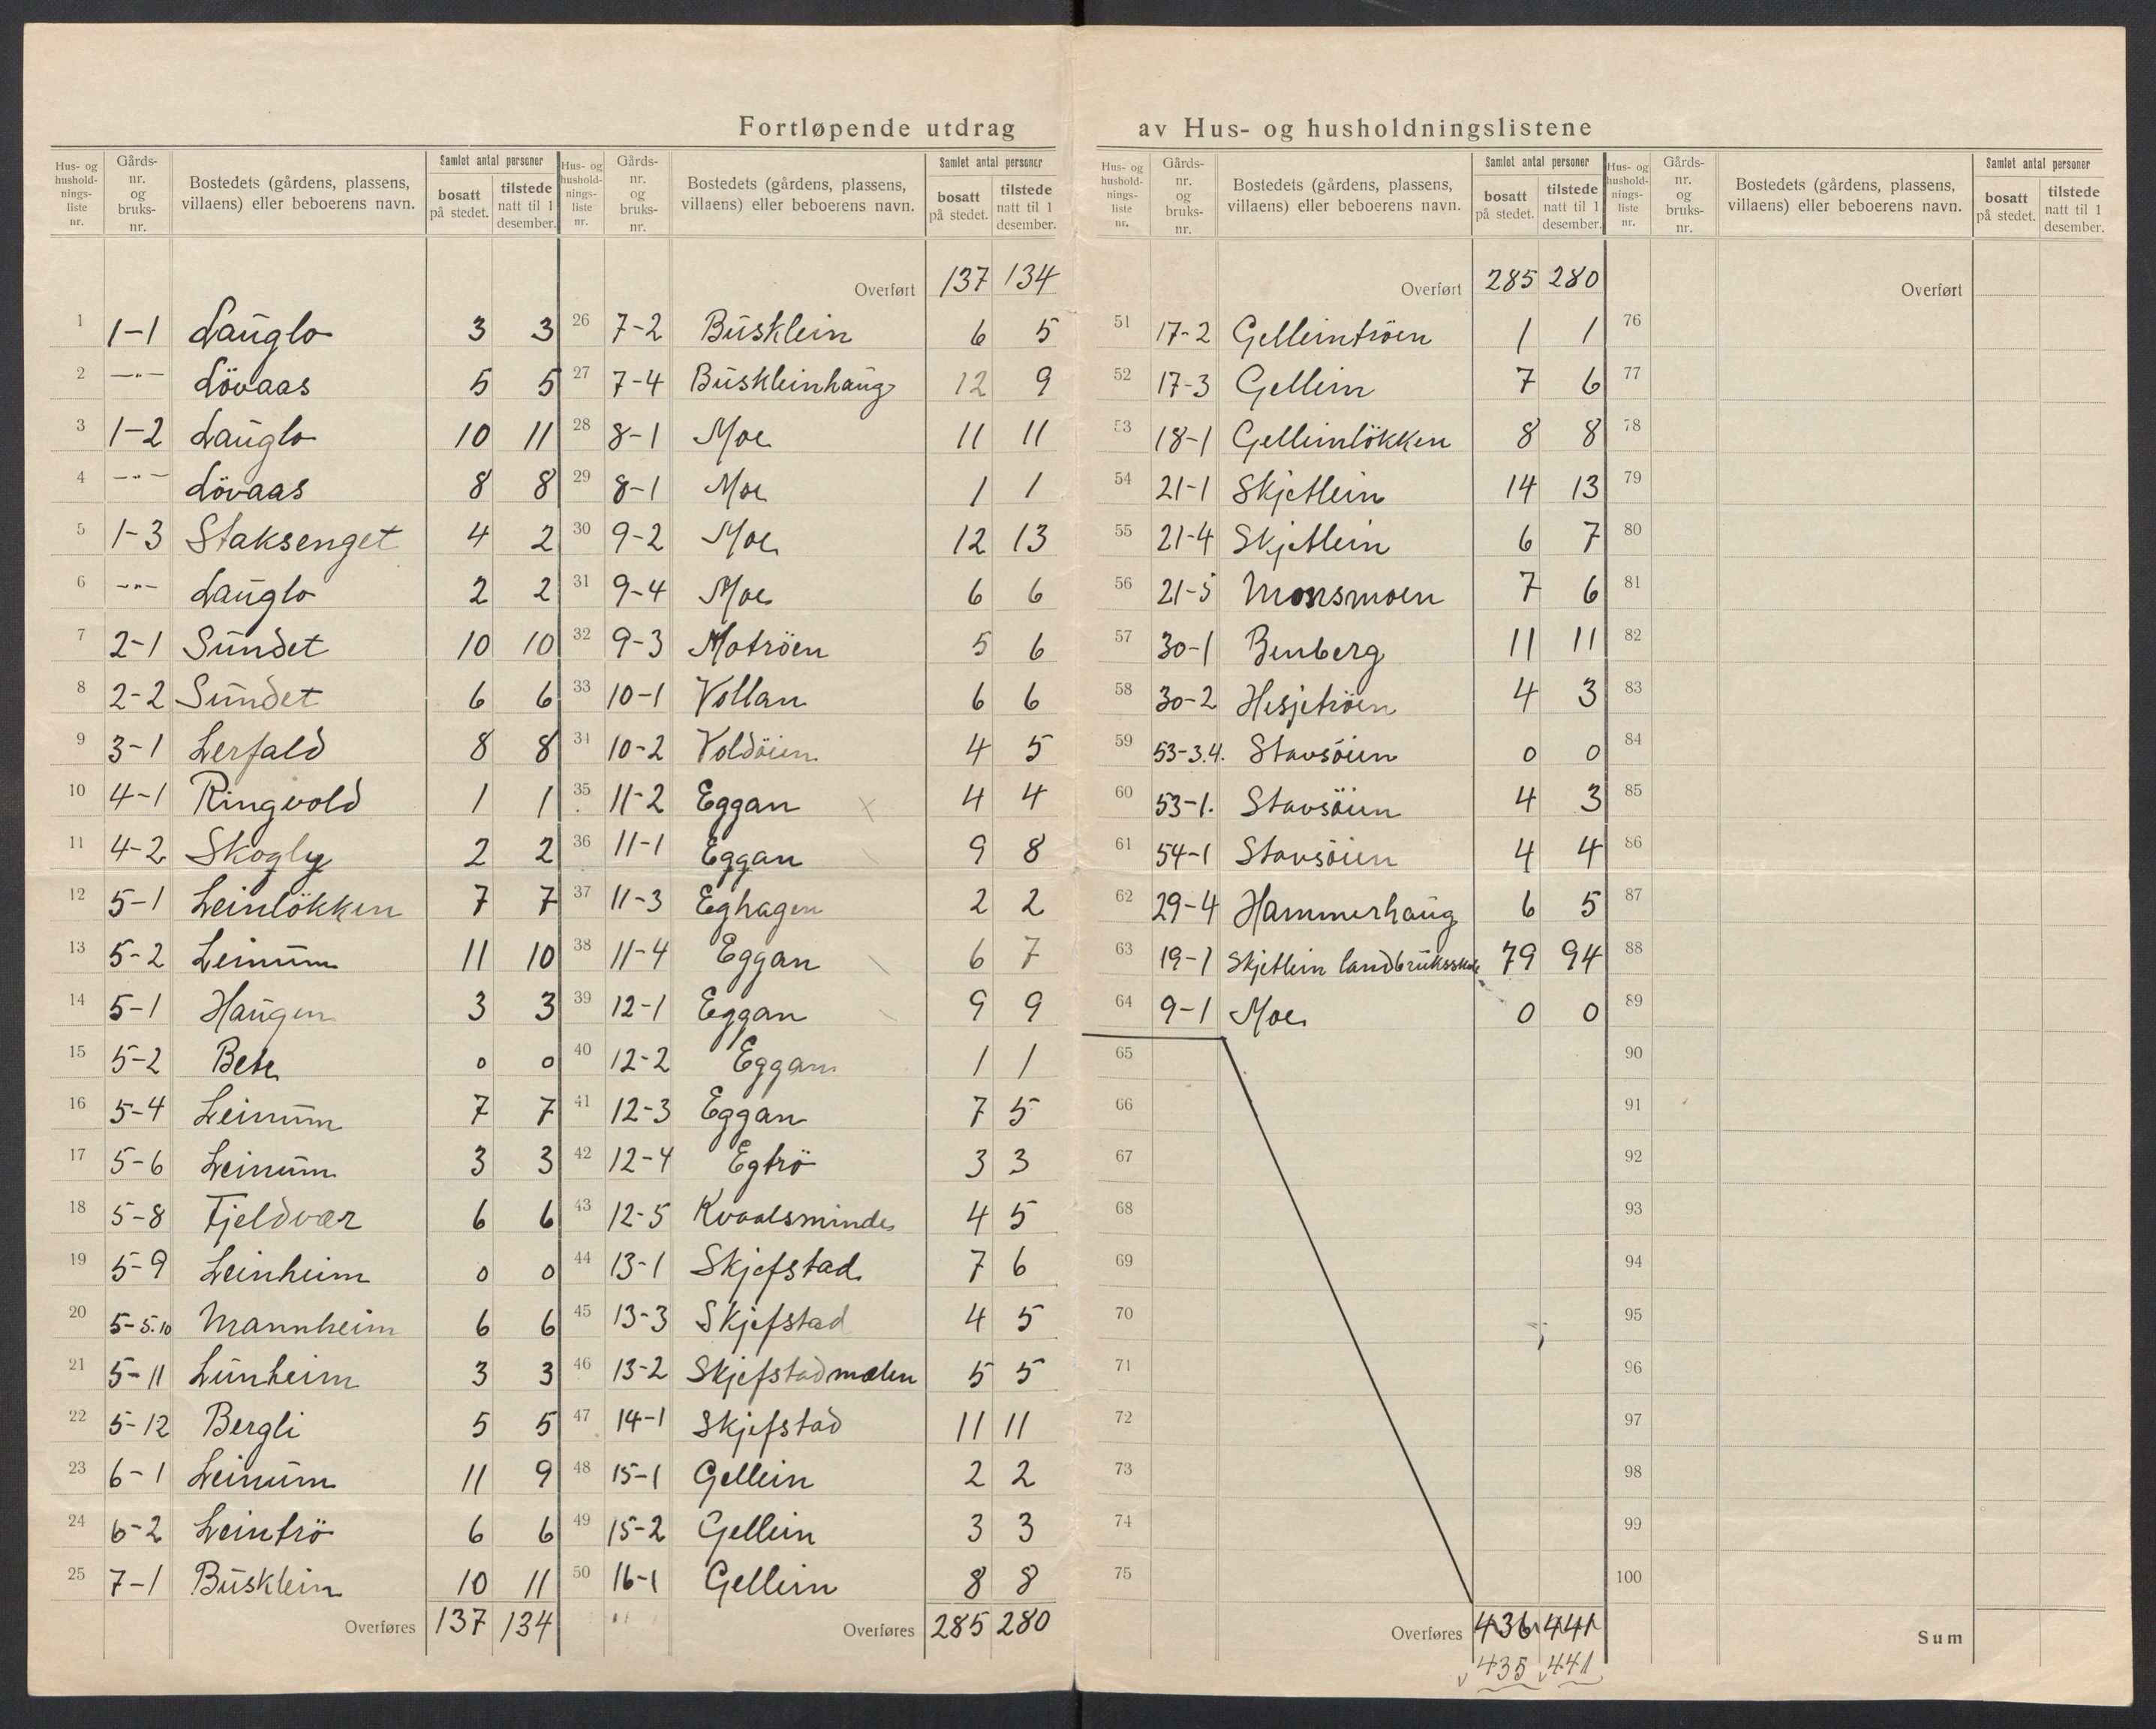 Fortløpende utdrag av Hus- og husholdningslistene
Hus- og hushold- nings- liste nr. Gårds- nr. og bruks- nr. Bostedets (gårdens, plassens, villaens) eller beboerens navn. Samlet antal personer bosatt på stedet. tilstede natt til 1 desember.
1 1-1 Lauglo 3 3
2 —"— Lövaas 5 5
3 1-2 Lauglo 10 11
4 —"— Lövaas 8 8
5 1-3 Staksenget 4 2
6 —"— Lauglo 2 2
7 2-1 Sundet 10 10
8 2-2 Sundet 6 6
9 3-1 Lerfald 8 8
10 4-1 Ringvold 1 1
11 4-2 Skogly 2 2
12 5-1 Leinlökken 7 7
13 5-2 Leinum 11 10
14 5-1 Haugen 3 3
15 5-2 Bete 0 0
16 5-4 Leinum 7 7
17 5-6 Leinum 3 3
18 5-8 Fjeldvær 6 6
19 5-9 Leinheim 0 0
20 5-5.10 Mannheim 6 6
21 5-11 Lunheim 3 3
22 5-12 Bergli 5 5
23 6-1 Leinum 11 9
24 6-2 Leintrö 6 6
25 7-1 Busklein 10 11
Overføres 137 134
Hus- og hushold- nings- liste nr. Gårds- nr. og bruks- nr. Bostedets (gårdens, plassens, villaens) eller beboerens navn. Samlet antal personer bosatt på stedet. tilstede natt til 1 desember.
Overført 137 134
26 7-2 Busklein 6 5
27 7-4 Buskleinhaug 12 9
28 8-1 Moe 11 11
29 8-1 Moe 1 1
30 9-2 Moe 12 13
31 9-4 Moe 6 6
32 9-3 Motröen 5 6
33 10-1 Vollan 6 6
34 10-2 Voldöien 4 5
35 11-2 Eggan x 4 4
36 11-1 Eggan 9 8
37 11-3 Eghagen 2 2
38 11-4 Eggan 6 7
39 12-1 Eggan 9 9
40 12-2 Eggan 1 1
41 12-3 Eggan 7 5
42 12-4 Egtrö 3 3
43 12-5 Kvaalsminde 4 5
44 13-1 Skjefstad 7 6
45 13-3 Skjefstad 4 5
46 13-2 Skjefstadmælen 5 5
47 14-1 Skjefstad 11 11
48 15-1 Gellein 2 2
49 15-2 Gellein 3 3
50 16-1 Gellein 8 8
Overføres 285 280
Hus- og hushold- nings- liste nr. Gårds- nr. og bruks- nr. Bostedets (gårdens, plassens, villaens) eller beboerens navn. Samlet antal personer bosatt på stedet. tilstede natt til 1 desember.
Overført 285 280
51 17-2 Gelleintröen 1 1
52 17-3 Gellein 7 6
53 18-1 Gelleinlökken 8 8
54 21-1 Skjetlein 14 13
55 21-4 Skjetlein 6 7
56 21-5 Monsmoen 7 6
57 30-1 Benberg 11 11
58 30-2 Hesjetröen 4 3
59 53-3.4. Stavsöien 0 0
60 53-1. Stavsöien 4 3
61 54-1 Stavsöien 4 4
62 29-4 Hammerhaug 6 5
63 19-1 Skjetlein landbruksskole 79 94
64 9-1 Moe 0 0
65
66
67
68
69
70
71
72
73
74
75
Overføres 436 441
435 441
Hus- og hushold- nings- liste nr. Gårds- nr. og bruks- nr. Bostedets (gårdens, plassens, villaens) eller beboerens navn. Samlet antal personer bosatt på stedet. tilstede natt til 1 desember.
Overført
76
77
78
79
80
81
82
83
84
85
86
87
88
89
90
91
92
93
94
95
96
97
98
99
100
Sum